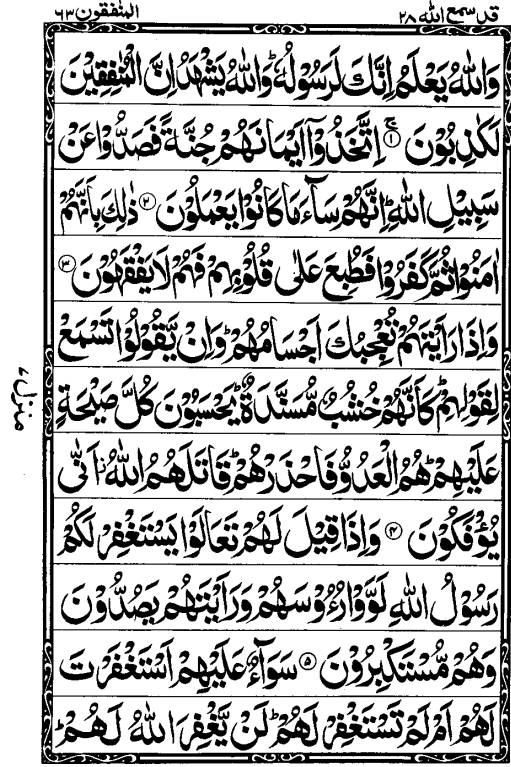 قد سمع الله ٢٨
المنٰفقون ٦٣
وَاللّٰهُ يَعْلَمُ اِنَّكَ لَرَسُوْلُهٗ ؕ وَاللّٰهُ يَشْهَدُ اِنَّ الْمُنٰفِقِيْنَ
لَكٰذِبُوْنَ ۚ‏﴿۱﴾ اِتَّخَذُوْۤا اَيْمَانَهُمْ جُنَّةً فَصَدُّوْا عَنْ
سَبِيْلِ اللّٰهِ ؕ اِنَّهُمْ سَآءَ مَا كَانُوْا يَعْمَلُوْنَ ﴿۲﴾ ذٰلِكَ بِاَنَّهُمْ
اٰمَنُوْا ثُمَّ كَفَرُوْا فَطُبِعَ عَلٰى قُلُوْبِهِمْ فَهُمْ لَا يَفْقَهُوْنَ ﴿۳﴾
وَاِذَا رَاَيْتَهُمْ تُعْجِبُكَ اَجْسَامُهُمْ ؕ وَاِنْ يَّقُوْلُوْا تَسْمَعْ
لِقَوْلِهِمْ ؕ كَاَنَّهُمْ خُشُبٌ مُّسَنَّدَةٌ ؕ يَحْسَبُوْنَ كُلَّ صَيْحَةٍ
عَلَيْهِمْ ؕ هُمُ الْعَدُوُّ فَاحْذَرْهُمْ ؕ قَاتَلَهُمُ اللّٰهُ ؗ اَنّٰى
يُؤْفَكُوْنَ ﴿۴﴾ وَاِذَا قِيْلَ لَهُمْ تَعَالَوْا يَسْتَغْفِرْ لَكُمْ
رَسُوْلُ اللّٰهِ لَوَّوْا رُءُوْسَهُمْ وَرَاَيْتَهُمْ يَصُدُّوْنَ
وَهُمْ مُّسْتَكْبِرُوْنَ ﴿۵﴾ سَوَآءٌ عَلَيْهِمْ اَسْتَغْفَرْتَ
لَهُمْ اَمْ لَمْ تَسْتَغْفِرْ لَهُمْ ؕ لَنْ يَّغْفِرَ اللّٰهُ لَهُمْ ؕ
منزل ٧